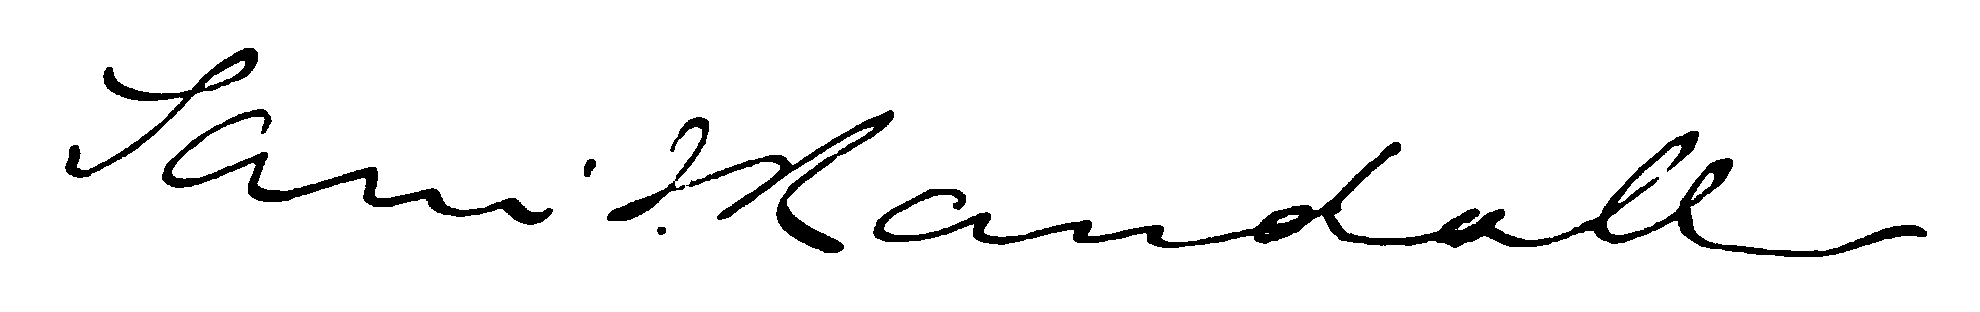 Sam' J. Randall